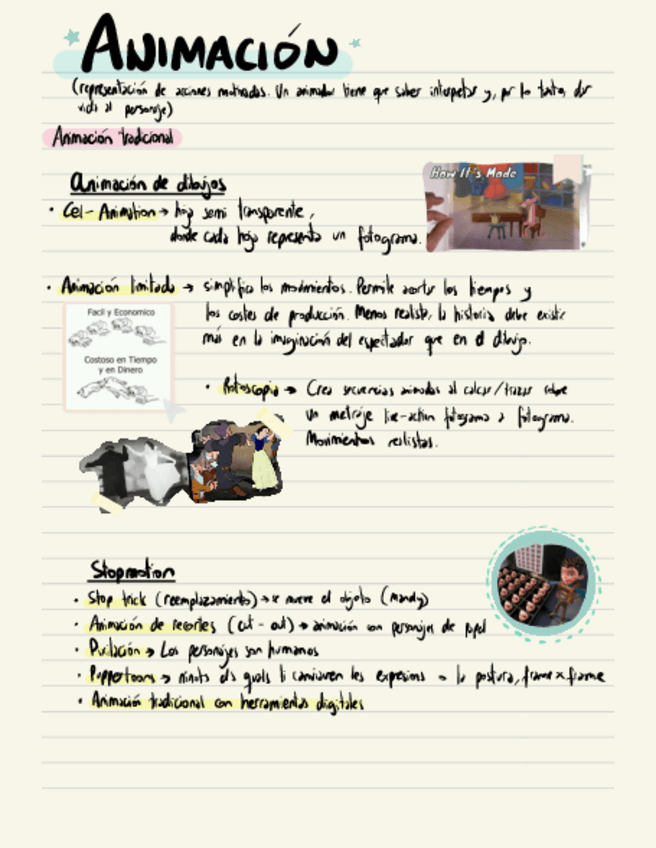 ANIMACIÓN
(representación de acciones motivadas. Un animador tiene que saber interpretar y, por lo tanto, dar
vida al personaje)
Animación tradicional
Animación de dibujos
How It's Made
· Cel-Animation → hoja semi transparente,
donde cada hoja representa un fotograma.
· Animación limitada → simplifica los movimientos. Permite acortar los tiempos y
los costes de producción. Menos realista, la historia debe existir
más en la imaginación del espectador que en el dibujo.
Facil y Economico
Costoso en Tiempo
y en Dinero
· Rotoscopia → Crea secuencias animadas al calcar/trazar sobre
un metraje live-action fotograma a fotograma.
Movimientos realistas.
Stopmotion
· Stop trick (reemplazamiento) → se mueve el objeto (mandy)
· Animación de recortes (cut-out) → animación con personajes de papel
· Pixilación → Los personajes son humanos
· Puppertoons → ninots els quals li canviaven les expresions o la postura, frame x frame
· Animación tradicional con herramientas digitales